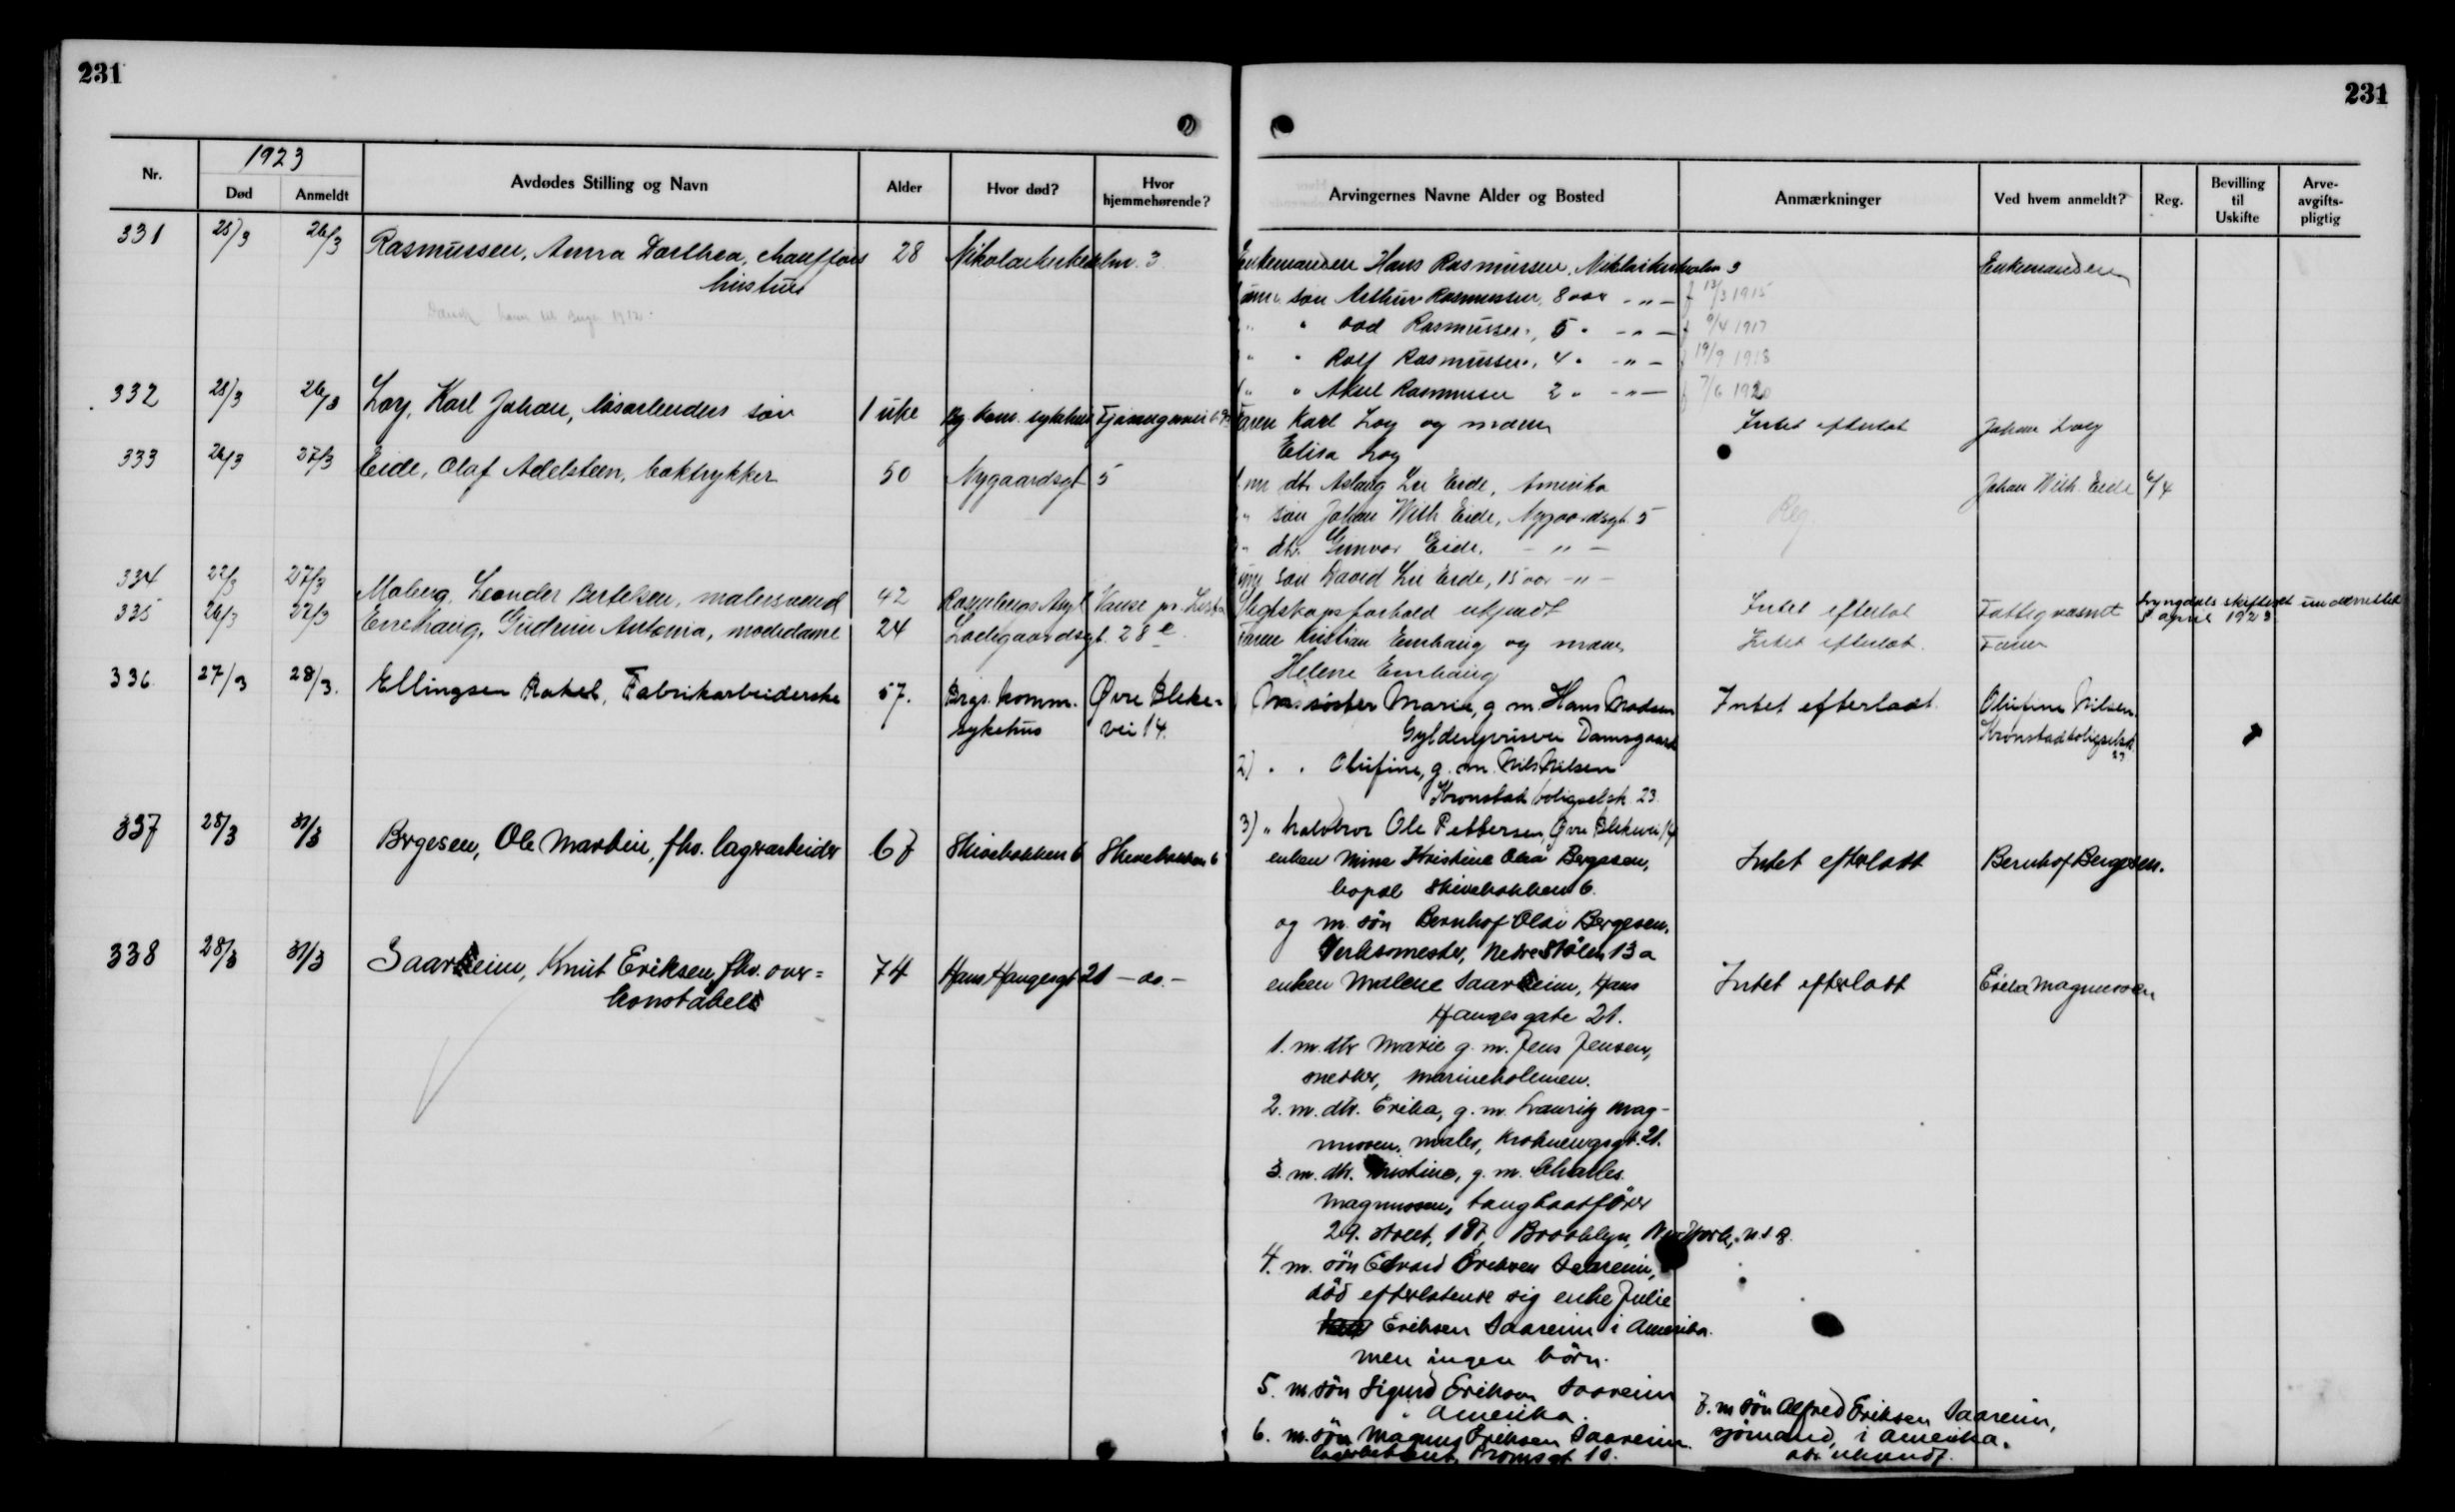 231
231
1923
Nr.
Død
Anmeldt
Avdødes Stilling og Navn
Alder
Hvor død?
Hvor hjemmehørende?
Arvingernes Navne Alder og Bosted
Anmærkninger
Ved hvem anmeldt?
Reg.
Bevilling til Uskifte
Arve-avgifts-pligtig
331 25/3 26/3 Rasmussen, Anna Dorthea, chaufførs 28 Nikolaikirkealm. 3
hustru
Enkemanden Hans Rasmussen, Nikolaikirkealm 3 Enkemanden
søn Arthur Rasmussen, 8 aar - " - f 13/3 1915
" Odd Rasmussen, 5 " - " - f 9/4 1917
" Rolf Rasmussen, 4 " - " - f 19/9 1918
" Aksel Rasmussen 2 " - " - f 7/6 1920
332 25/3 26/3 Loy, Karl Johan, løsarbeiders søn 1 uke
Faren Karl Loy og moren Intet efterlat Johan Loy
Elisa Loy
333 26/3 27/3 Eide, Olaf Adelsteen, boktrykker 50 Nygaardsgt 5
dtr. Aslaug Lie Eide, Amerika Johan Wilh. Eide 6/4
" søn Johan Wilh Eide, Nygaardsgt. 5 Reg.
" dtr. Gunvor Eide, - " -
søn David Lie Eide, 15 aar - " -
334 22/3 27/3 Moberg, Leonder Bertelsen, malersvend 42 Rosenbergs Asyl Vanse pr. Lista
Slegtskapsforhold ukjendt Intet efterlat Fattigvæsnet Lyngdals skifteret underrettet
5 april 1923
335 26/3 27/3 Enehaug, Gudrun Antonia, modedame 24 Ladegaardsgt. 28 e
Faren Kristian Enehaug og moren Intet efterlat. Faren
Helene Enehaug
336 27/3 28/3. Ellingsen Rakel, Fabrikarbeiderske 57. Brgs. komm. sykehus Øvre Blekevei 14.
søster Marie, g m. Hans Madsen Intet efterladt. Olufine Nilsen
Gyldenprisvei Damsgaard Kronstad boligselsk.
23
2) " " Olufine, g. m. Nils Nilsen
Kronstad boligselsk. 23.
3) " halvbror Ole Pettersen, Øvre Blekevei 14
337 28/3 31/3 Bergesen, Ole Martin, fhv. lagerarbeider 67 Skivebakken 6 Skivebakken 6
enken Mina Kristine Olsa Bergesen, Intet efterladt Bernhof Bergesen.
bopæl Skivebakken 6.
og m. søn Bernhof Olai Bergesen,
Verksmester, Nedre Stølen 13 a
338 28/3 31/3 Saarheim, Knut Eriksen, fhv. over=
konstabel 74 Hans Haugesgt 21 - do. -
enken Malene Saarheim, Hans Intet efterladt Erika Magnussen
Haugesgate 21.
1. m. dtr Marie g. m. Jens Jensen,
snedker, Marineholmen.
2. m. dtr. Erika, g. m. Lauritz Mag-
nussen, maler, Krohnengsgt. 21.
3. m. dtr. Kristine, g. m. Charles
Magnussen, taugbaatfører
29. street, 187, Brooklyn, New York, U.S.A.
4. m. søn Edvard Eriksen Saareim,
død efterlatende sig enke Julie
Eriksen Saareim i Amerika.
men ingen børn.
5. m søn Sigurd Eriksen Saareim
i Amerika.
6. m. søn Magnus Eriksen Saareim.
7. m søn Alfred Eriksen Saareim,
sjømand, i Amerika.
adr. ukjendt.